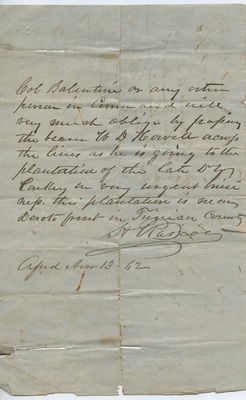 Col Balentine or any other
person in Command will
very much oblige by passing
the bearer W D Howell across
the lines as he is going to the
plantation of the late
on very urgent busi
ness this plantation is near
Desoto front in Tunica County

Nov 13 - 62